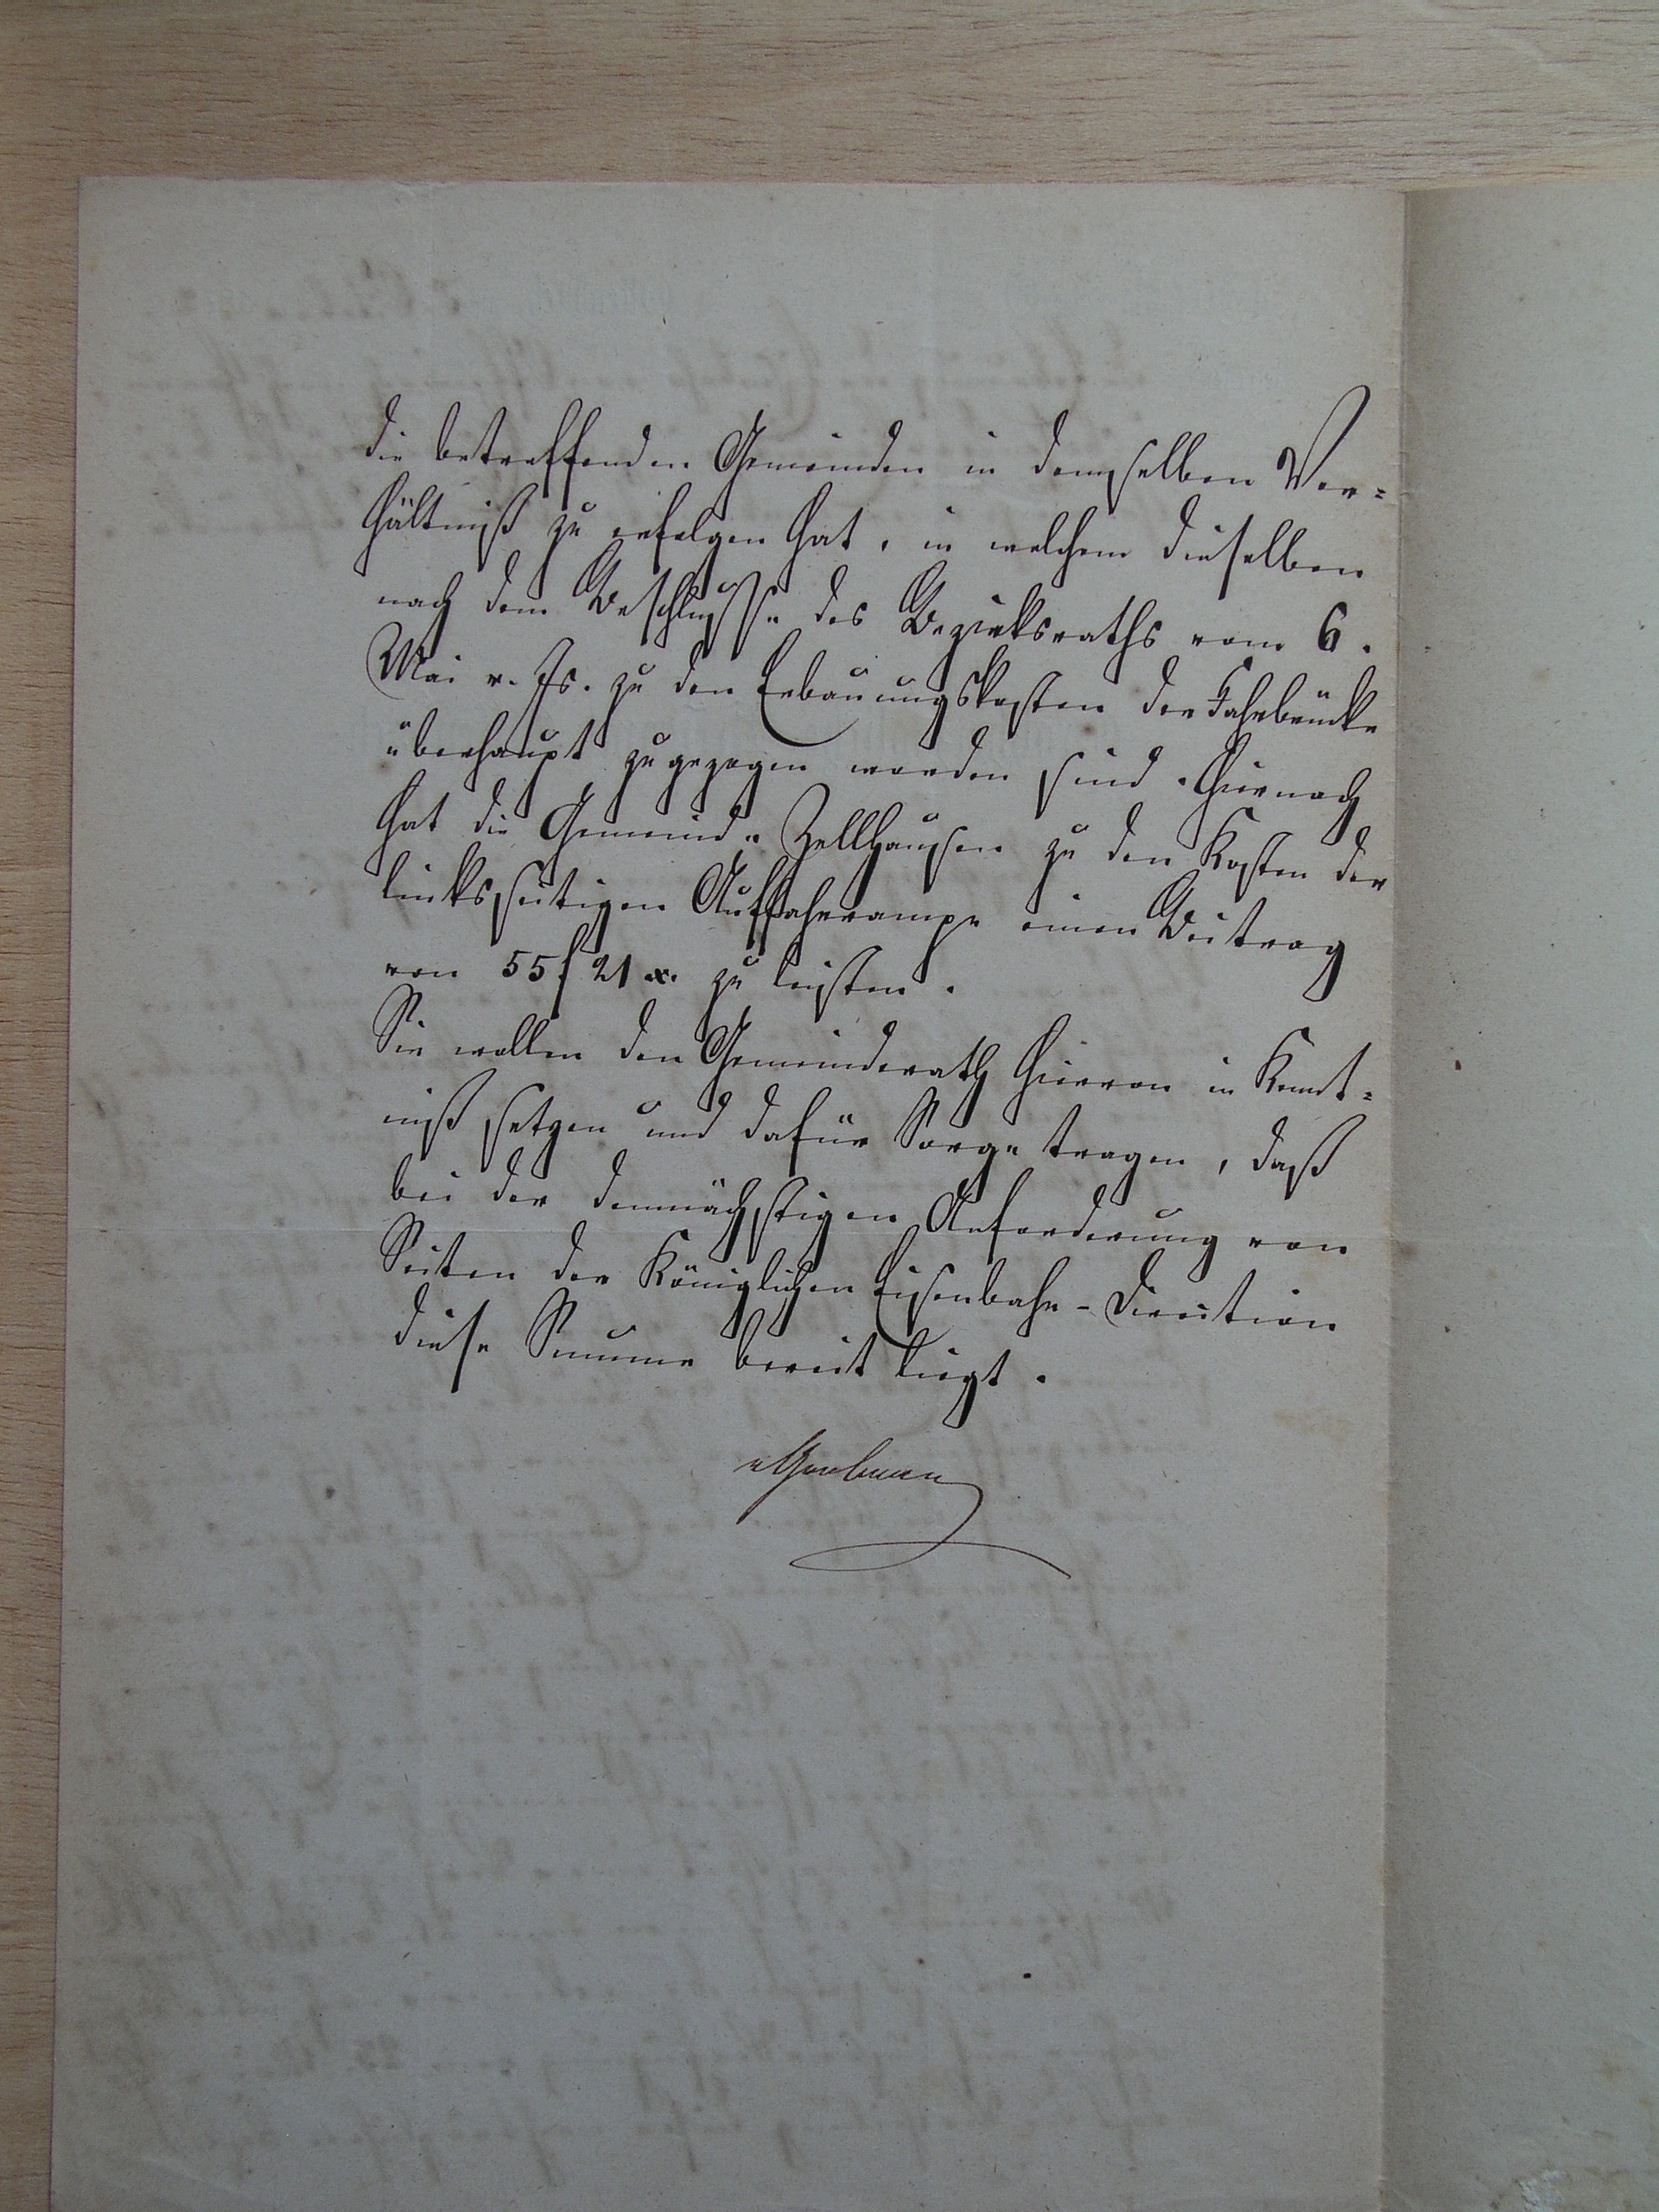 die betreffenden Gemeinden in demselben Ver=
hältniß zu erfolgen hat, in welchem dieselben
nach dem Beschlusse des Bezirksraths vom 6.
Mai v. Js. zu den Erbauungskosten der Fahrbrücke
überhaupt zugezogen worden sind. Hiernach
hat die Gemeinde Zellhausen zu den Kosten der
linksseitigen Auffahrrampe einen Beitrag
von 55 f 21 x. zu leisten.
Sie wollen den Gemeinderath hiervon in Kennt=
niß setzen und dafür Sorge tragen, daß
bei der demnächstigen Anforderung von
Seiten der Königlichen Eisenbahn-Direction
diese Summe bereit liegt.